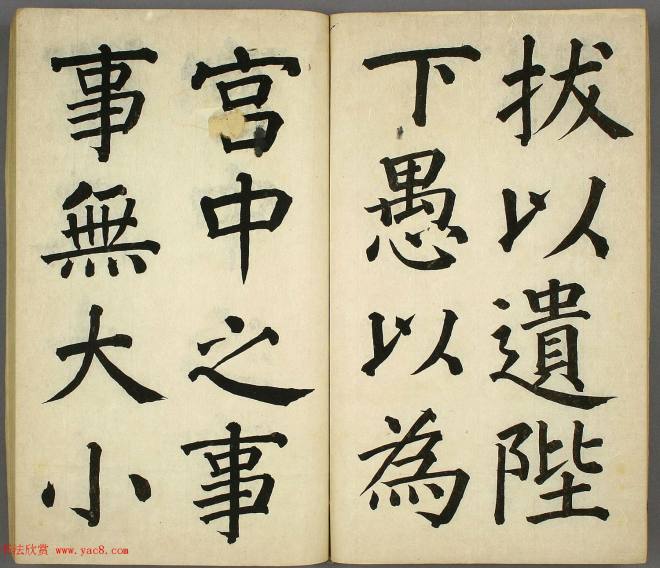 拔以遺陛
下愚以為
宮中之事
事無大小
书法欣赏 www.yac8.com